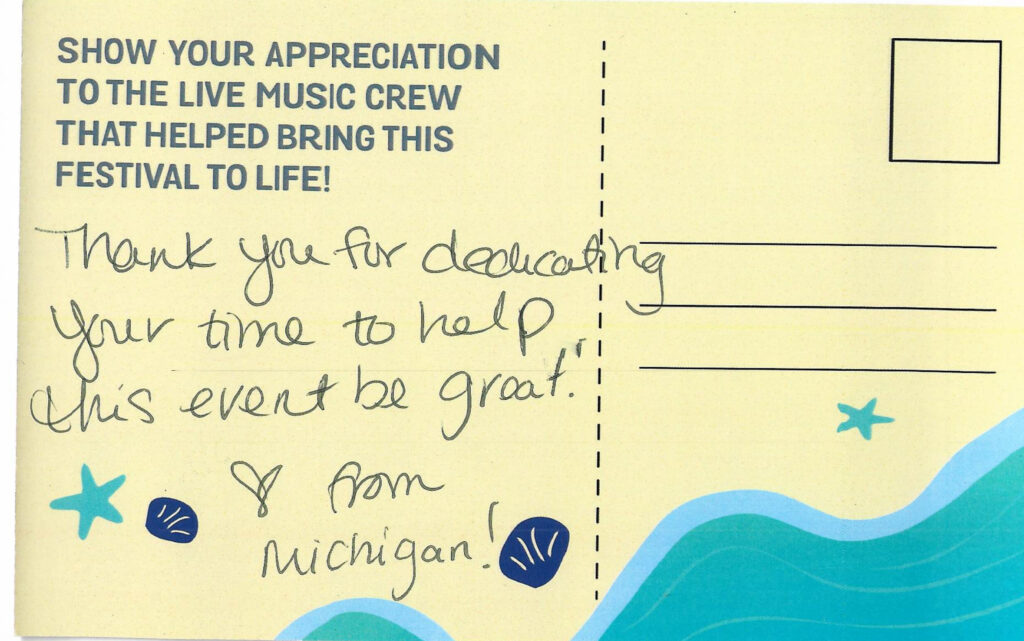 SHOW YOUR APPRECIATION
TO THE LIVE MUSIC CREW
THAT HELPED BRING THIS
FESTIVAL TO LIFE!
Thank you for dedicating
your time to help
this event be great!
♡ from
Michigan!